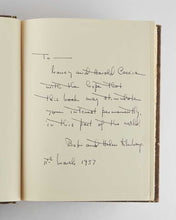 To —
Nancy and Harold
with the hope that
this book may stimulate
your interest permanently
in this part of the world
Bob and Helen
March 1957